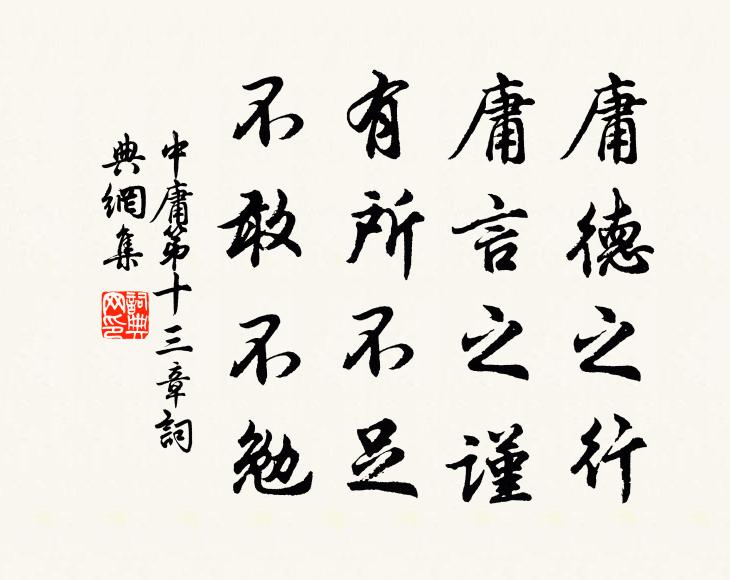 庸德之行
庸言之謹
有所不足
不敢不勉
中庸第十三章詞
典網集
詞典
网印